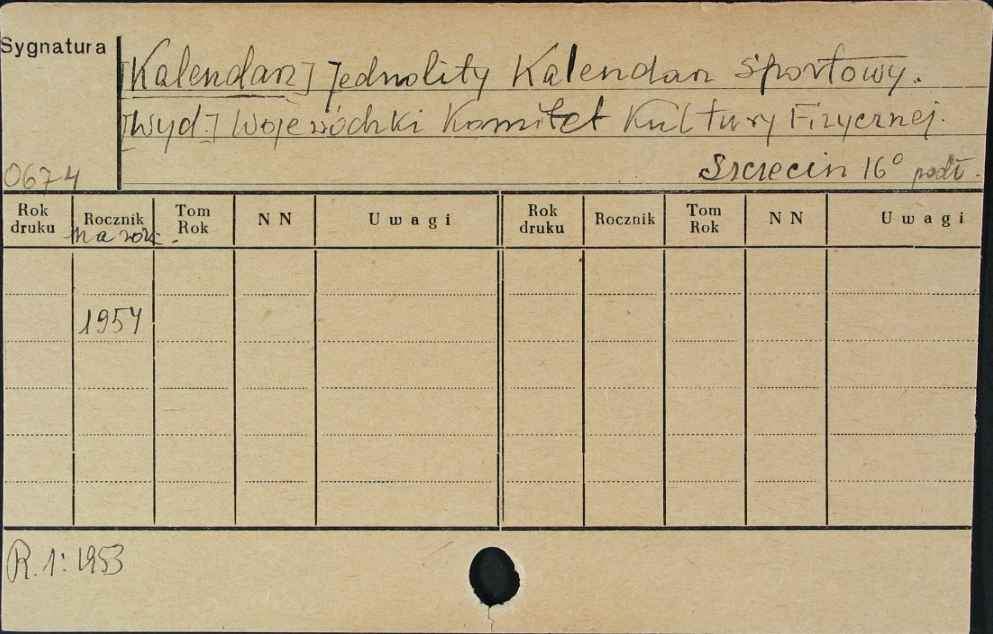 Sygnatura
[Kalendarz] Jednolity Kalendarz Sportowy.
[Wyd.] Wojewódzki Komitet Kultury Fizycznej.
0674
Szczecin 16° podł.
Rok druku Rocznik Tom Rok NN Uwagi Rok druku Rocznik Tom Rok NN Uwagi
na rok.
1954
R. 1: 1953